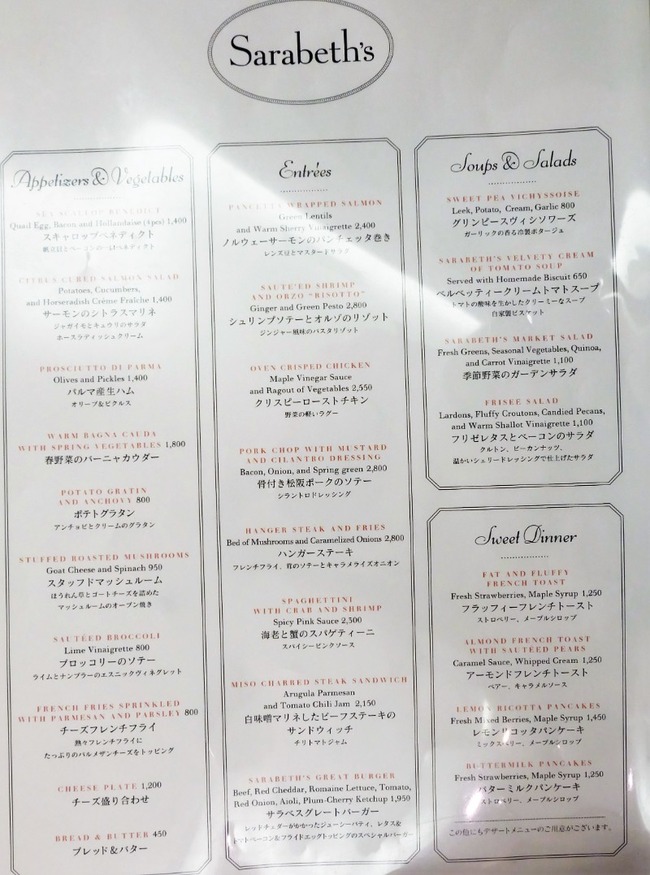 Sarabeth's
Appetizers & Vegetables
SEA SCALLOP BENEDICT
Quail Egg, Bacon and Hollandaise (4pcs) 1,400
スキャロップベネディクト
帆立貝とベーコンのエッグベネディクト
CITRUS CURED SALMON SALAD
Potatoes, Cucumbers,
and Horseradish Crème Fraîche 1,400
サーモンのシトラスマリネ
ジャガイモとキュウリのサラダ
ホースラディッシュクリーム
PROSCIUTTO DI PARMA
Olives and Pickles 1,400
パルマ産生ハム
オリーブ&ピクルス
WARM BAGNA CAUDA
WITH SPRING VEGETABLES 1,800
春野菜のバーニャカウダー
POTATO GRATIN
AND ANCHOVY 800
ポテトグラタン
アンチョビとクリームのグラタン
STUFFED ROASTED MUSHROOMS
Goat Cheese and Spinach 950
スタッフドマッシュルーム
ほうれん草とゴートチーズを詰めた
マッシュルームのオーブン焼き
SAUTÉED BROCCOLI
Lime Vinaigrette 800
ブロッコリーのソテー
ライムとナンプラーのエスニックヴィネグレット
FRENCH FRIES SPRINKLED
WITH PARMESAN AND PARSLEY 800
チーズフレンチフライ
熱々フレンチフライに
たっぷりのパルメザンチーズをトッピング
CHEESE PLATE 1,200
チーズ盛り合わせ
BREAD & BUTTER 450
ブレッド&バター
Entrées
PANCETTA WRAPPED SALMON
Green Lentils
and Warm Sherry Vinaigrette 2,400
ノルウェーサーモンのパンチェッタ巻き
レンズ豆とマスタードソース
SAUTE'ED SHRIMP
AND ORZO "RISOTTO"
Ginger and Green Pesto 2,800
シュリンプソテーとオルゾのリゾット
ジンジャー風味のパスタリゾット
OVEN CRISPED CHICKEN
Maple Vinegar Sauce
and Ragout of Vegetables 2,550
クリスピーローストチキン
野菜の軽いラグー
PORK CHOP WITH MUSTARD
AND CILANTRO DRESSING
Bacon, Onion, and Spring green 2,800
骨付き松阪ポークのソテー
シラントロドレッシング
HANGER STEAK AND FRIES
Bed of Mushrooms and Caramelized Onions 2,800
ハンガーステーキ
フレンチフライ、茸のソテーとキャラメライズオニオン
SPAGHETTINI
WITH CRAB AND SHRIMP
Spicy Pink Sauce 2,300
海老と蟹のスパゲティーニ
スパイシーピンクソース
MISO CHARRED STEAK SANDWICH
Arugula Parmesan
and Tomato Chili Jam 2,150
白味噌マリネしたビーフステーキの
サンドウィッチ
チリトマトジャム
SARABETH'S GREAT BURGER
Beef, Red Cheddar, Romaine Lettuce, Tomato,
Red Onion, Aioli, Plum-Cherry Ketchup 1,950
サラベスグレートバーガー
レッドチェダーがかかったジューシーパティ、レタス&
トマトベーコン&フライドエッグトッピングのスペシャルバーガー
Soups & Salads
SWEET PEA VICHYSSOISE
Leek, Potato, Cream, Garlic 800
グリンピースヴィシソワーズ
ガーリックの香る冷製ポタージュ
SARABETH'S VELVETY CREAM
OF TOMATO SOUP
Served with Homemade Biscuit 650
ベルベッティークリームトマトスープ
トマトの酸味を生かしたクリーミーなスープ
自家製ビスケット
SARABETH'S MARKET SALAD
Fresh Greens, Seasonal Vegetables, Quinoa,
and Carrot Vinaigrette 1,100
季節野菜のガーデンサラダ
FRISEE SALAD
Lardons, Fluffy Croutons, Candied Pecans,
and Warm Shallot Vinaigrette 1,100
フリゼレタスとベーコンのサラダ
クルトン、ピーカンナッツ、
温かいシュリードレッシングで仕上げたサラダ
Sweet Dinner
FAT AND FLUFFY
FRENCH TOAST
Fresh Strawberries, Maple Syrup 1,250
フラッフィーフレンチトースト
ストロベリー、メープルシロップ
ALMOND FRENCH TOAST
WITH SAUTEED PEARS
Caramel Sauce, Whipped Cream 1,250
アーモンドフレンチトースト
ペアー、キャラメルソース
LEMON RICOTTA PANCAKES
Fresh Mixed Berries, Maple Syrup 1,450
レモンリコッタパンケーキ
ミックスベリー、メープルシロップ
BUTTERMILK PANCAKES
Fresh Strawberries, Maple Syrup 1,250
バターミルクパンケーキ
ストロベリー、メープルシロップ
この他にもデザートメニューのご用意がございます。